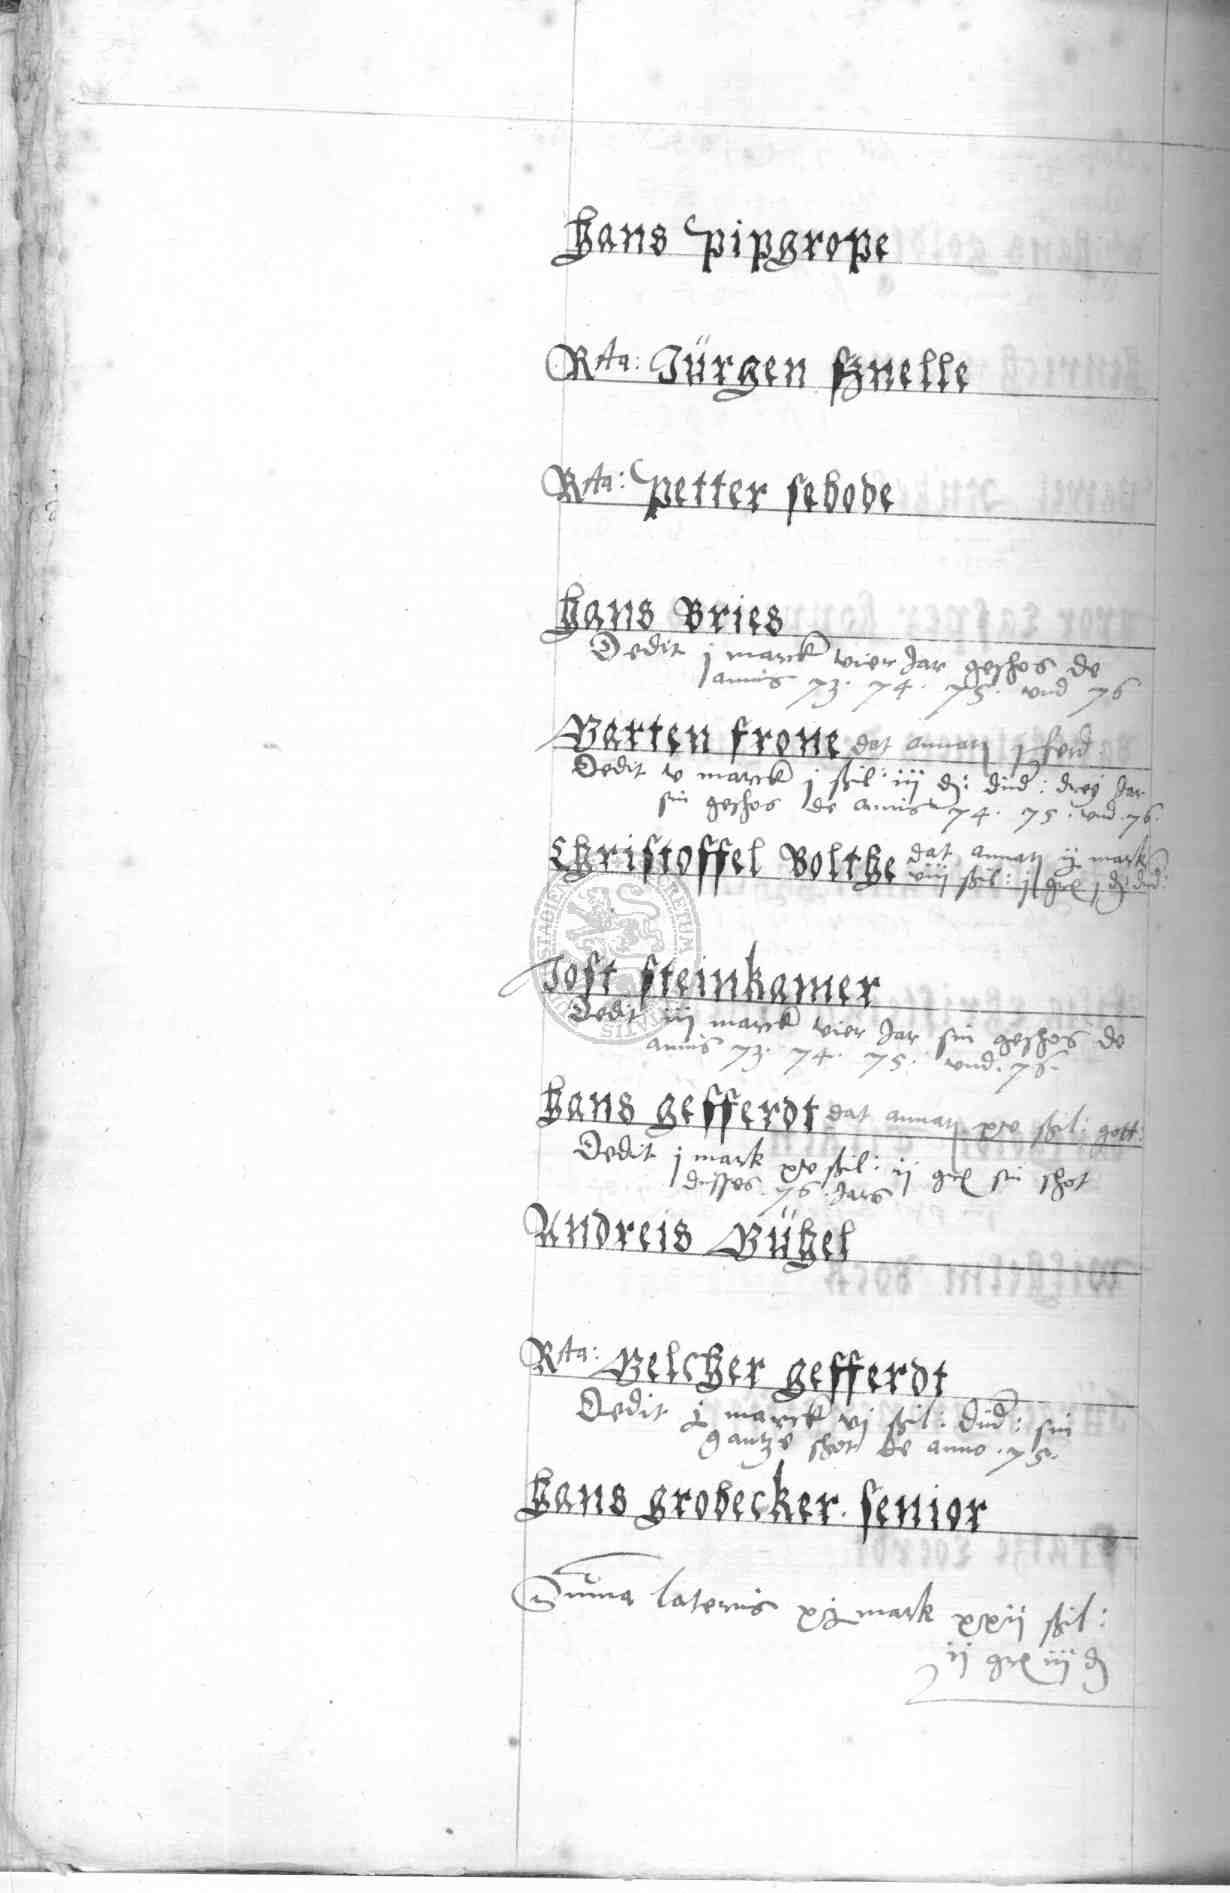 Hans Pipgrope
Rta: Jürgen Sznelle
Rta: Petter sebode
Hans Bries
Dedit j marck vier Jar geschos de
annis 73. 74. 75. vnd 76
Barten frone dat annatj j ferd:
Dedit v marck j szil: iij d: düd: drey Jar
sin geschos de annis 74. 75. vnd. 76.
Christoffel Bolthe dat annatj ij mark
viij szil: j gr j d düd:
Jost steinkamer
Dedit iij marck vier Jar sin geschos de
annis 73. 74. 75. vnd. 76.
Hans gefferdt dat annatj xv szil: gott:
Dedit j mark xv szil: ij gr sin schot
disses. 76. Jars
Andreis Bühel
Rta: Belcher gefferdt
Dedit j marck vj szil: düd: sin
gantze schot de anno. 75.
Hans grobecker. senior
Summa lateris xj mark xxij szil:
ij gr iij d